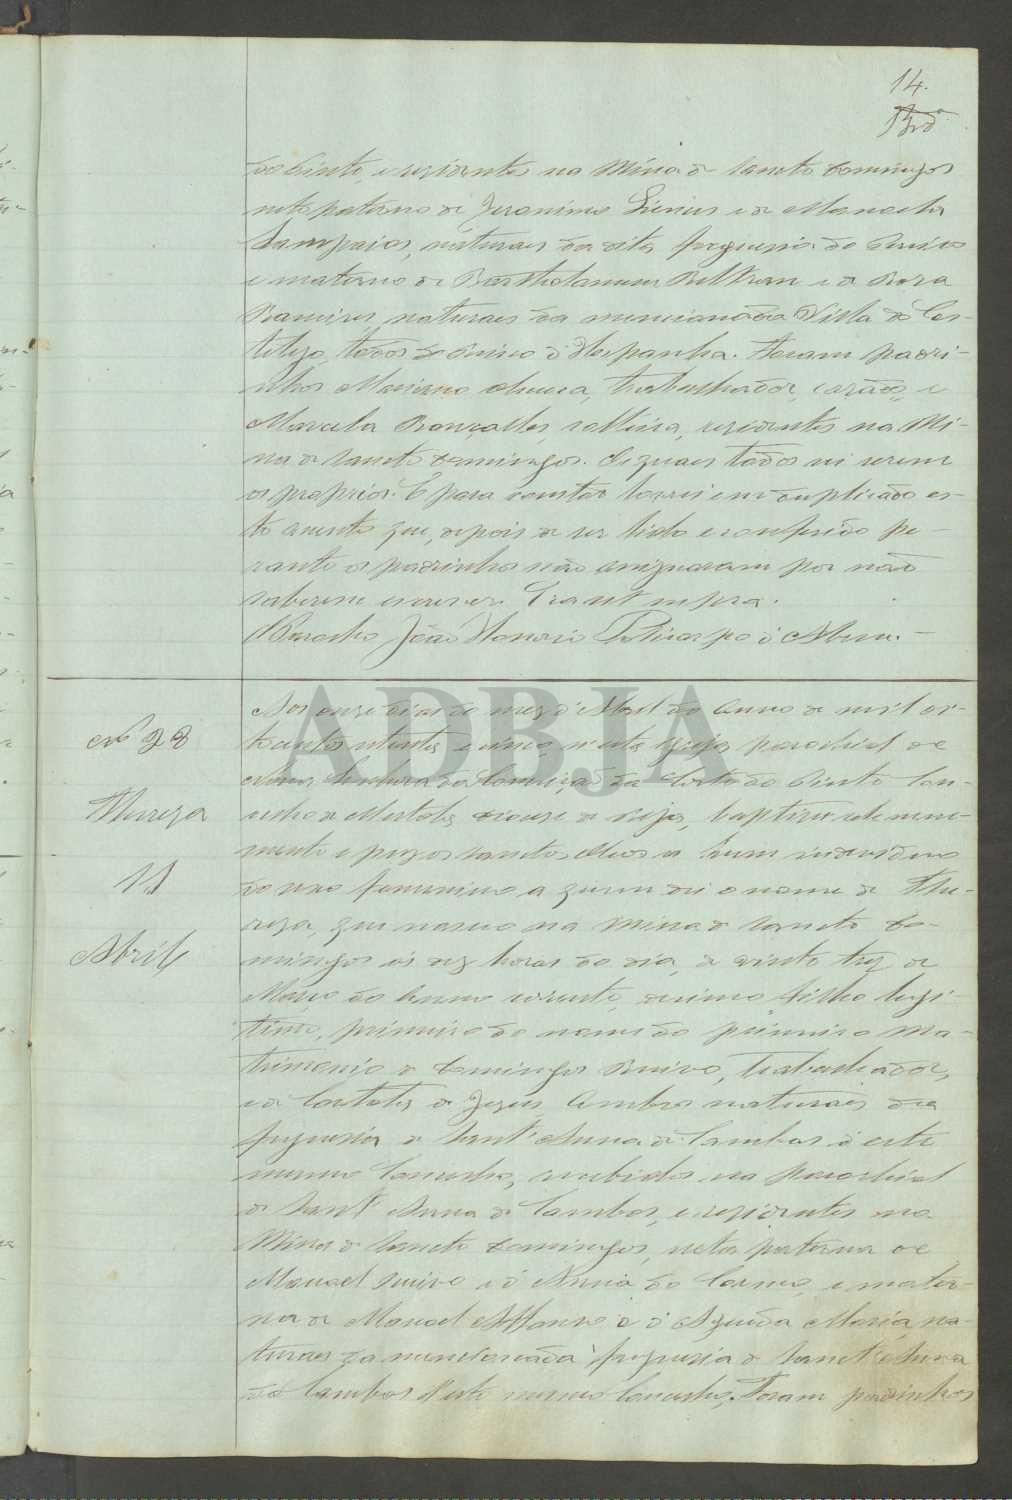 14.
do Pinto, e residentes na Mina de Sancto Domingos
neto paterno de Jeronimo e de Manoela
Sampaios, naturaes da dita freguesia do
e materno de Bartholomeu Beltran e de Roza
Ramires, naturaes da mencionada Villa de Cas-
tilejo, todos do Reino d'Hespanha. Foram padri-
nhos Mariano, trabalhador, casado, e
Marcela Gonçalles, solteira, residentes na Mi-
na de Sancto Domingos. Os quaes todos sei serem
os proprios. E para constar lavrei em duplicado es-
te assento que, depois de ser lido e conferido pe-
rante os padrinhos não assignaram por não
saberem escrever. Era ut supra.
O Parocho João Honorio Policarpo d'Abreu.
ADBJA
Nº 28
Thereza
11
Abril
Aos onze dias do mez d'Abril do anno de mil oi-
tocentos setenta e cinco, n'esta Egreja parochial de
Nossa Senhora da Conceição da Corte do Pinto Con-
celho de Mertola, diocese de Beja, baptisei solemne-
mente e puz os sanctos oleos a hum individuo
do sexo femenino a quem dei o nome de The-
reza, que nasceu na Mina de Sancto Do-
mingos ás dez horas do dia, de vinte trez de
Março do anno corrente, decimo filho legi-
timo, primeiro do nome do primeiro Ma-
trimonio de Domingos Ruivo, Trabalhador,
e de de Jezus, ambos naturaes da
freguesia de Sant'Anna de Cambas d'este
mesmo Concelho, recebidos na parochial
de Sant'Anna de Cambas, e residentes na
Mina de Sancto Domingos, neta paterna de
Manoel Ruivo e d'Anna do Carmo, e mater-
na de Manoel Affonso e d'Agueda Maria, na-
turaes da mencionada freguesia de Sant'Anna
de Cambas d'este mesmo Concelho. Foram padrinhos